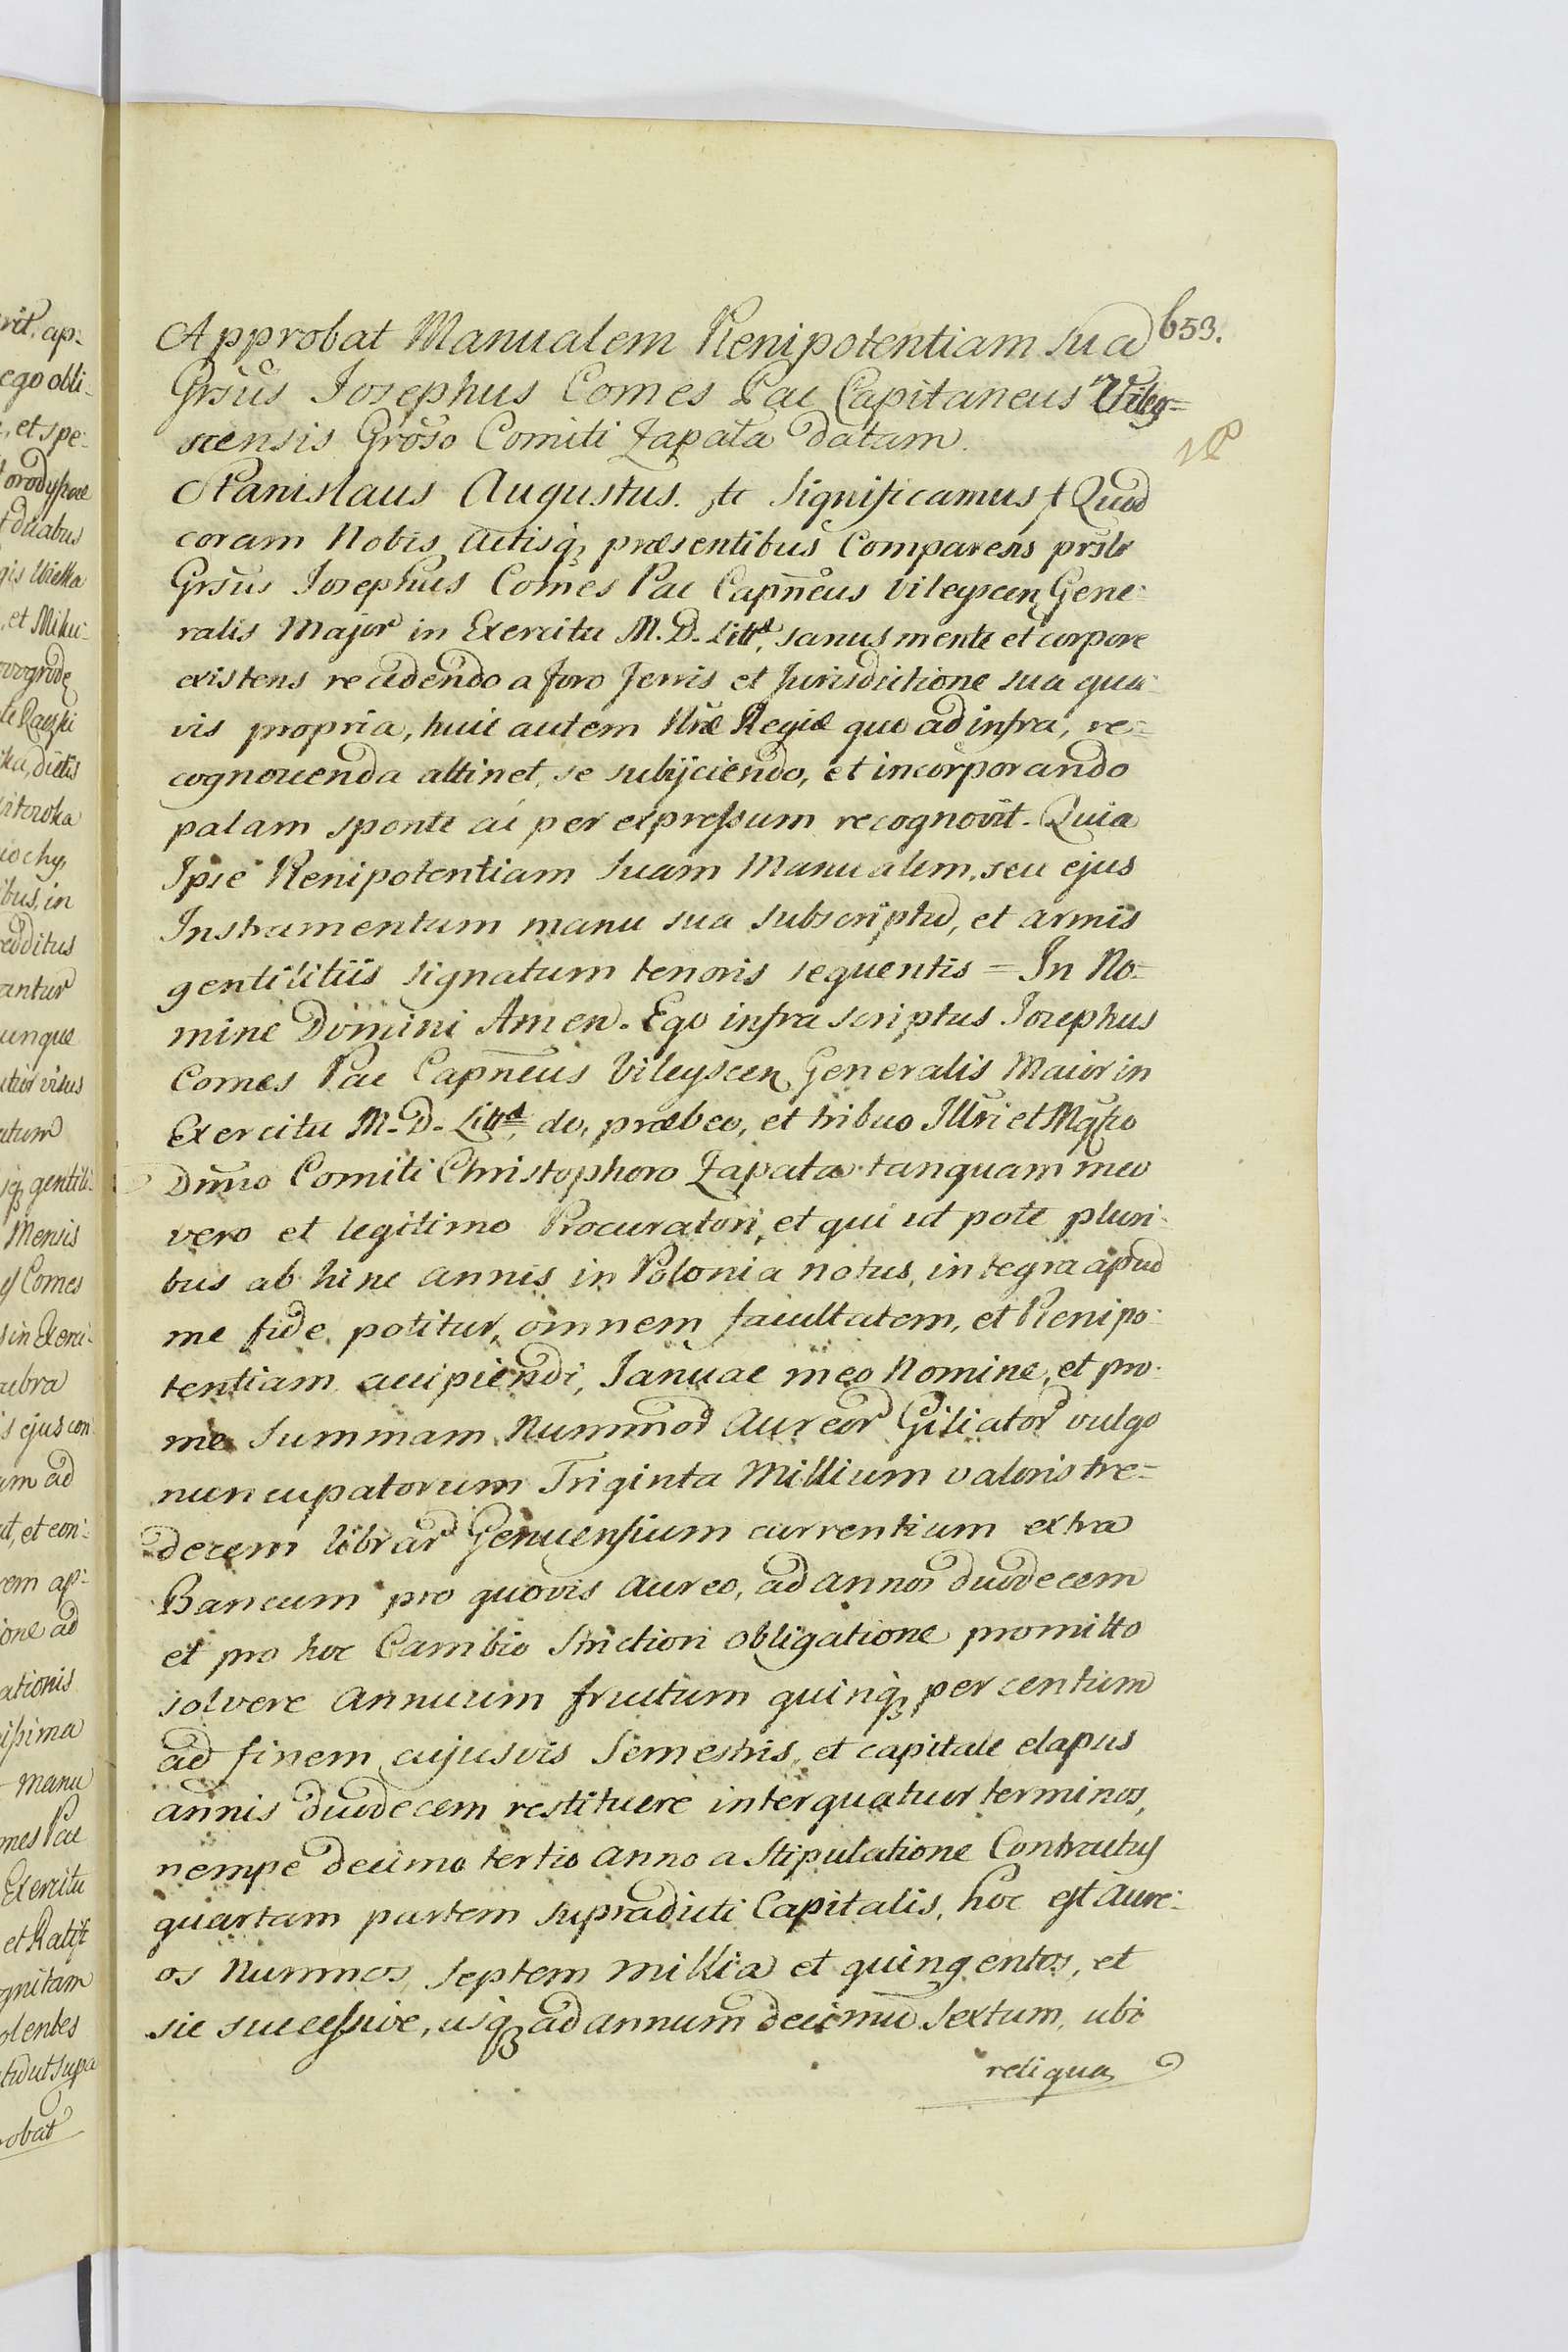 653.
Approbat Manualem Plenipotentiam sua
Grsus Josephus Comes Pac Capitaneus Viley=
scensis Groso Comiti Zapata datam.
Stanislaus Augustus. etc Significamus Quod
coram Nobis Actisq; præsentibus Comparens
Grsus Josephus Comes Pac Capneus Vileyscen Gene-
ralis Major in Exercitu M. D. Litt, sanus mente et corpore
existens recedendo a foro Terris et Jurisdictione sua qua-
vis propria, huic autem Nræ Regiæ quo ad infra, re=
cognoscenda attinet, se subijciendo, et incorporando
palam sponte ac per expressum recognovit. Quia
Ipse Plenipotentiam suam Manualem, seu ejus
Instrumentum manu sua subscriptu, et armis
gentilitiis signatum tenoris sequentis = In No=
mine Domini Amen. Ego infra scriptus Josephus
Comes Pac Capneus Vileyscen Generalis Maior in
Exercitu M. D. Litt, do, præbeo, et tribuo Illri et Mgco
Dnno Comiti Christophoro Zapata tanquam meo
vero et legitimo Procuratori, et qui ut pote pluri-
bus ab hinc annis in Polonia notus, integra apud
me fide potitur, omnem facultatem, et Plenipo-
tentiam accipiendi, Januae meo Nomine, et pro
me Summam Nummor Aureor Giliator vulgo
nuncupatorum Triginta Millium valoris tre=
decem librar Genuensium currentium extra
Bancum pro quovis aureo, ad annos duodecem
et pro hoc Cambio Strictiori obligatione promitto
solvere annuum fructum quinq; per centum
ad finem cujusvis Semestris, et capitale elapsis
annis duodecem restituere inter quatuor terminos,
nempe decimo tertio anno a Stipulatione Contractus
quartam partem supradicti Capitalis, hoc est Aure-
os Nummos septem millia et quingentos, et
sic successive, usq; ad annum decimu Sextum, ubi
reliqua